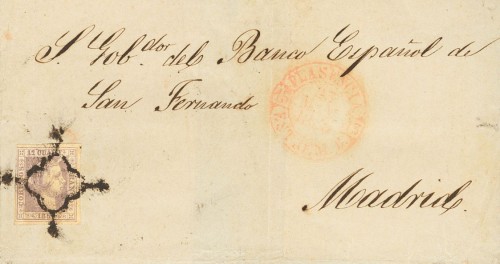 S. Gob.dor del Banco Español de
San Fernando
Madrid.